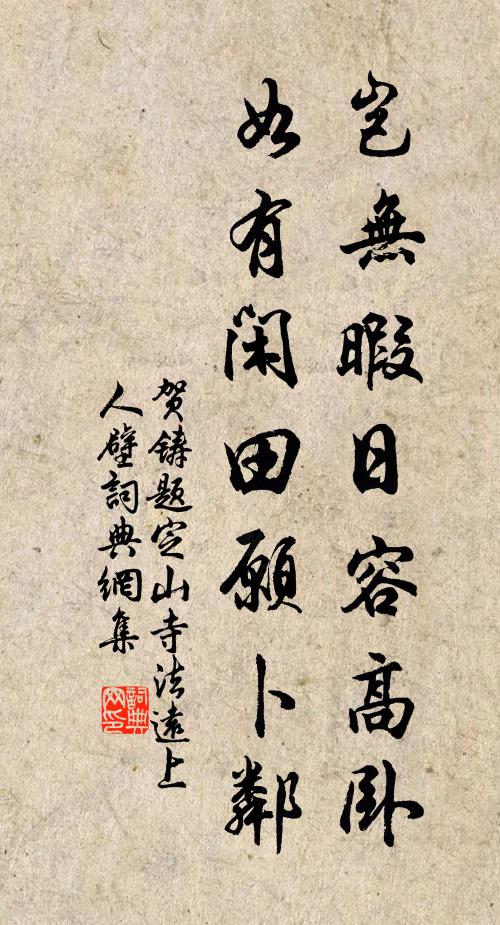 岂無暇日容高卧
如有閑田願卜鄰
贺鑄题定山寺法遠上
人壁詞典網集
詞典
网印